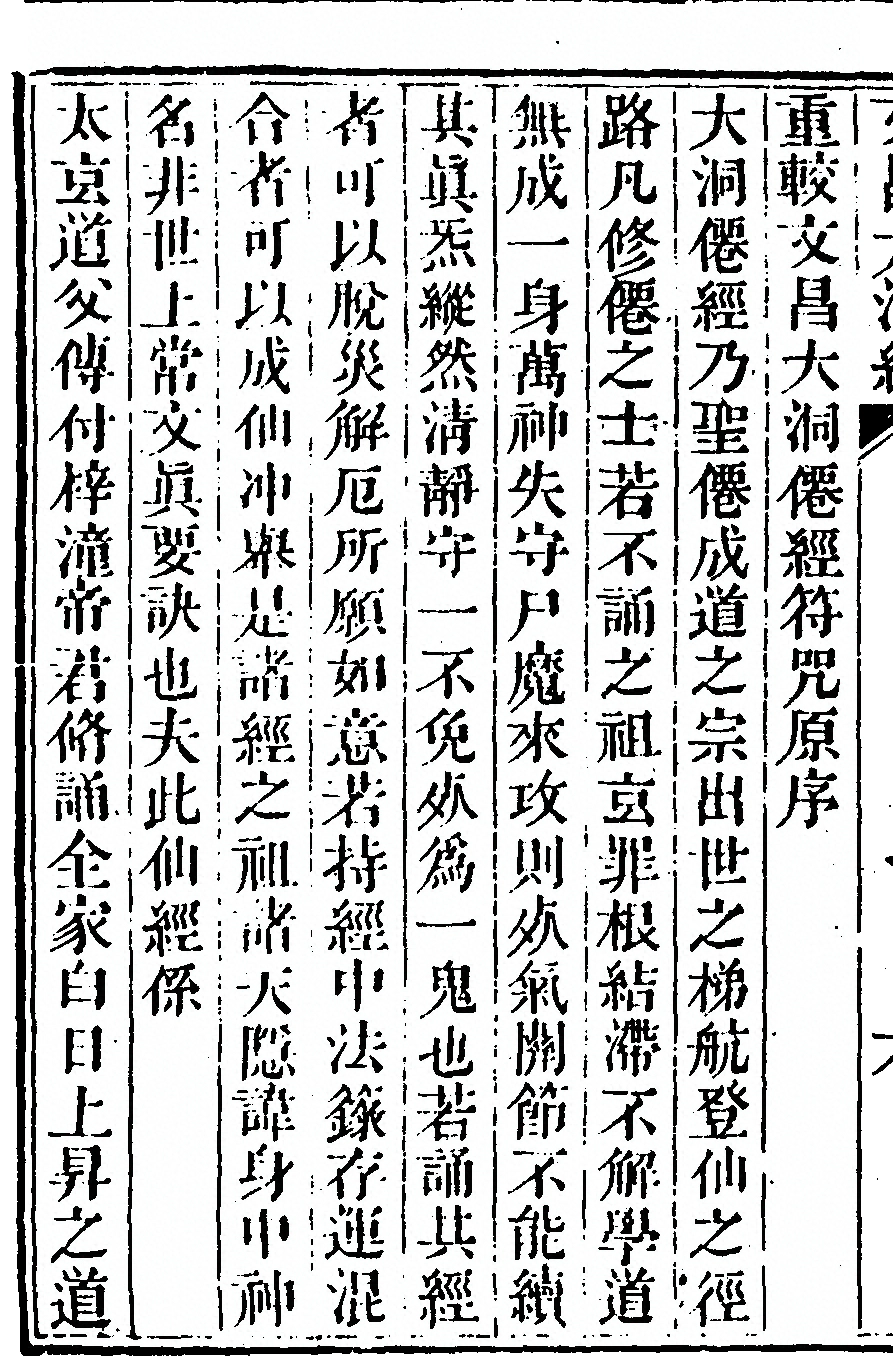 重較文昌大洞僊經符咒原序
大洞僊經乃聖僊成道之宗出世之梯航登仙之徑
路凡修僊之士若不誦之祖玄罪根結滯不解學道
無成一身萬神失守尸魔來攻則死氣開節不能續
其眞炁縱然清靜守一不免死爲一鬼也若誦其經
者可以脫災解厄所願如意若持經中法籙存運混
合者可以成仙冲舉是諸經之祖諸天隱諱身中神
名非世上常文眞要訣也夫此仙經係
太玄道父傳付梓潼帝君脩誦全家白日上昇之道